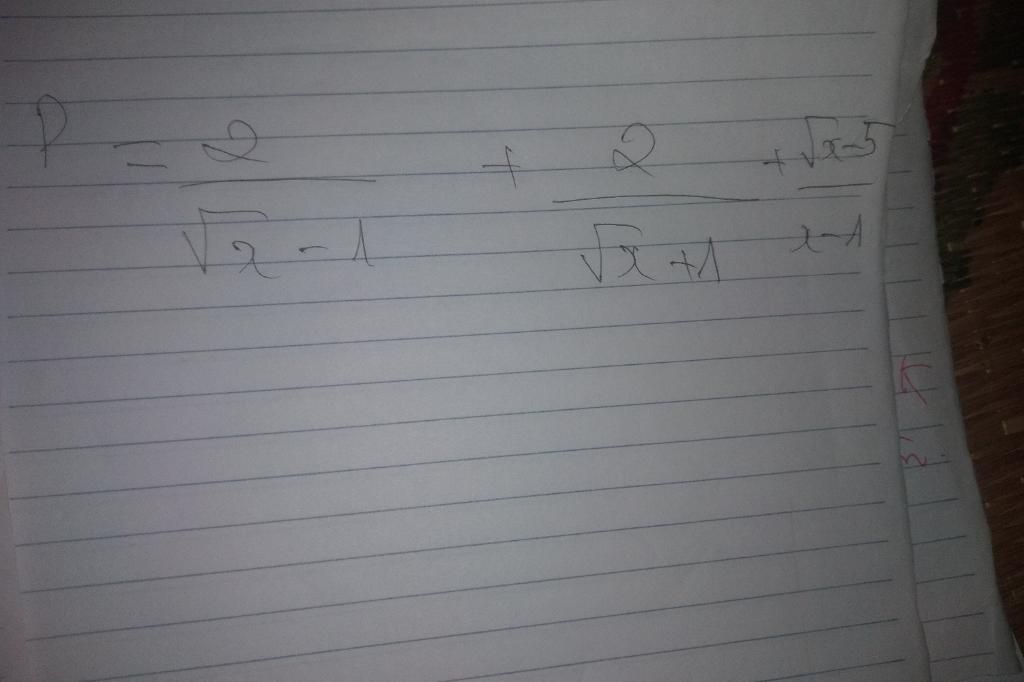 P = 2 / (√x - 1) + 2 / (√x + 1) + (√x - 5) / (x - 1)